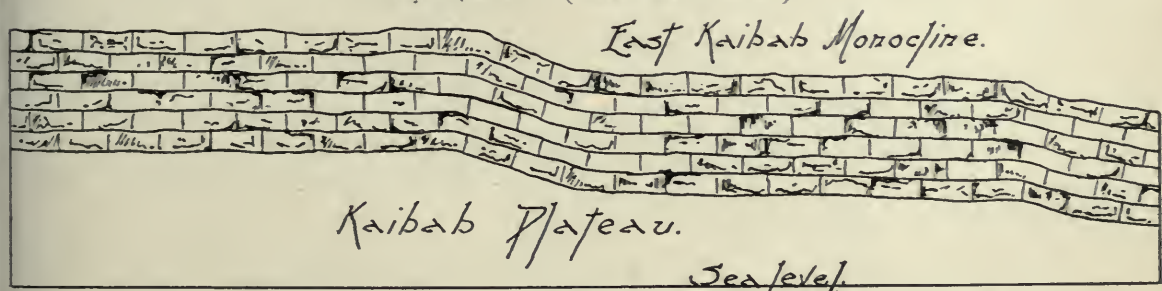 East Kaibab Monocline.
Kaibab Plateau.
Sea level.